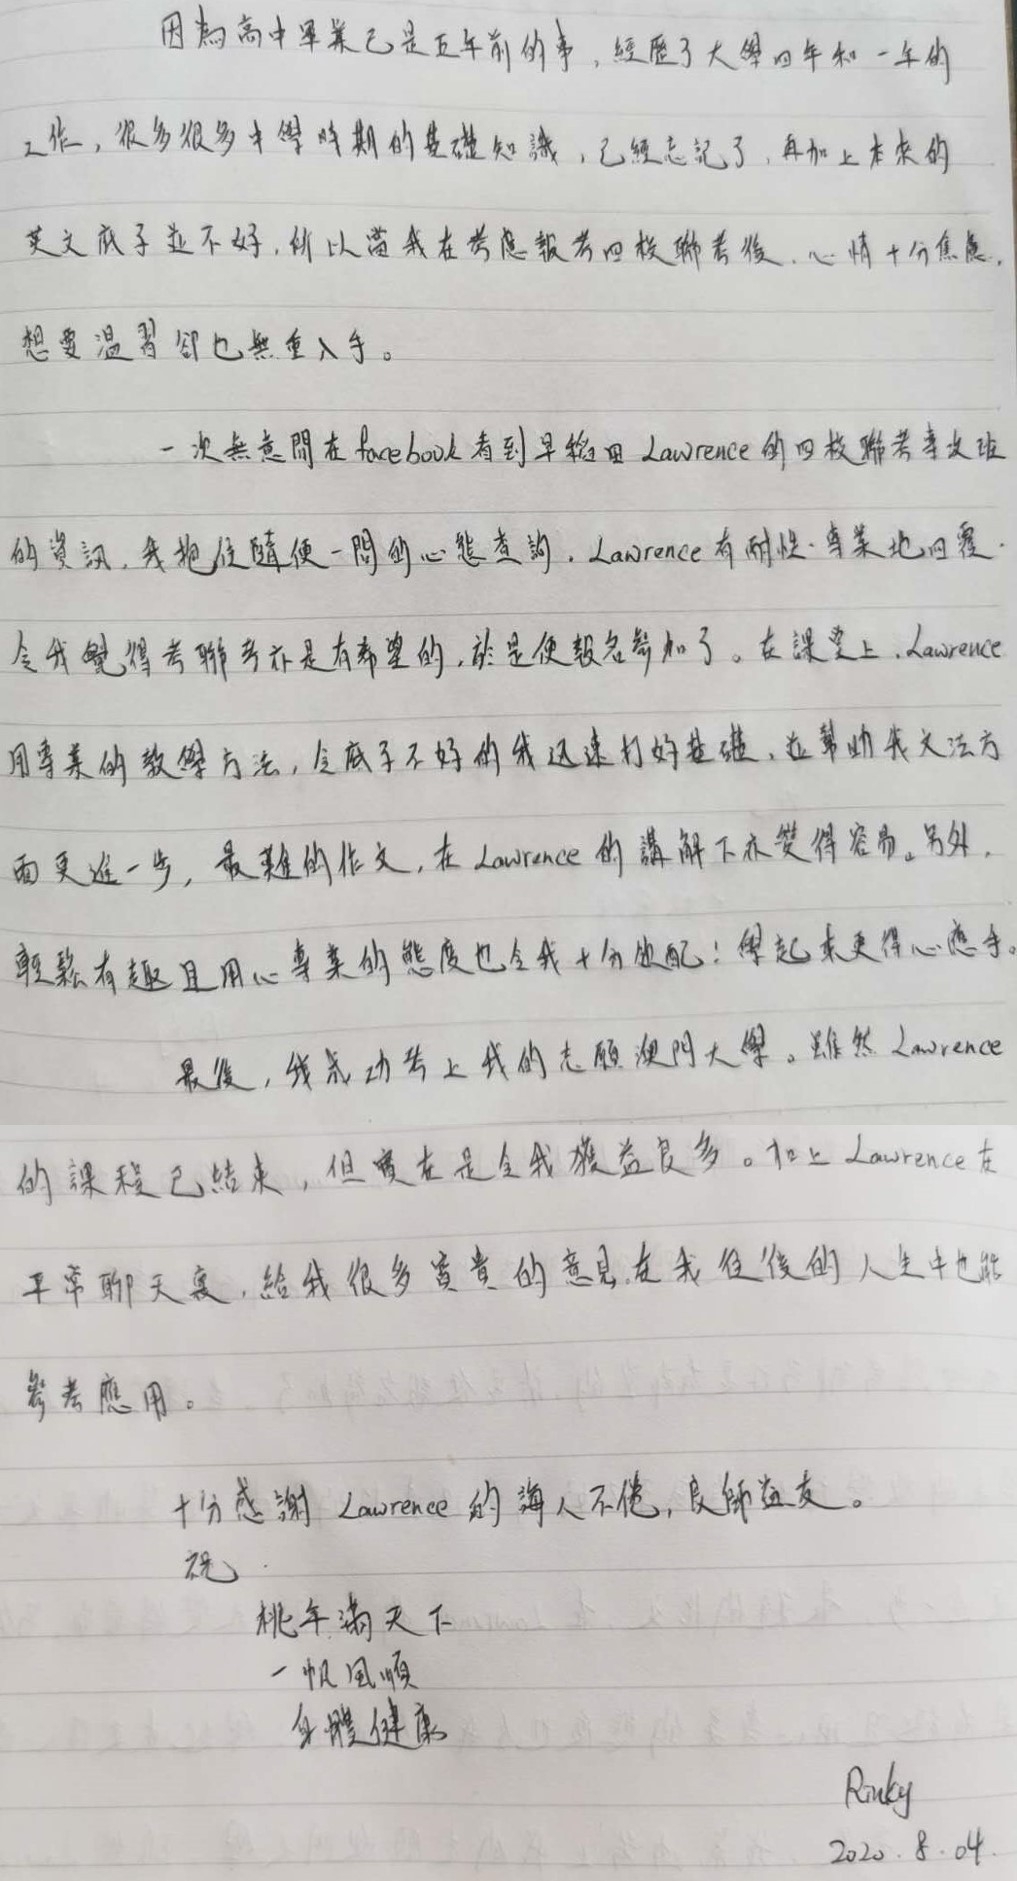 因為高中畢業已是五年前的事，經歷了大學四年和一年的
工作，很多很多中學時期的基礎知識，已經忘記了，再加上本來的
英文底子並不好，所以當我在考慮報考四校聯考後，心情十分焦慮，
想要溫習卻也無重入手。
一次無意間在facebook看到早稻田Lawrence的四校聯考專攻班
的資訊，我抱住隨便一問的心態查詢，Lawrence有耐性、專業地回覆，
令我覺得考聯考亦是有希望的，於是便報名參加了。在課堂上，Lawrence
用專業的教學方法，令底子不好的我迅速打好基礎，並幫助我文法方
面更進一步，最難的作文，在Lawrence的講解下亦變得容易。另外，
輕鬆有趣且用心專業的態度也令我十分欽配！學起來更得心應手。
最後，我成功考上我的志願澳門大學。雖然Lawrence
的課程已結束，但實在是令我獲益良多。加上Lawrence在
平常聊天裏，給我很多寶貴的意見，在我往後的人生中也能
參考應用。
十分感謝Lawrence的誨人不倦，良師益友。
祝
桃李滿天下
一帆風順
身體健康
Rinky
2020.8.04.